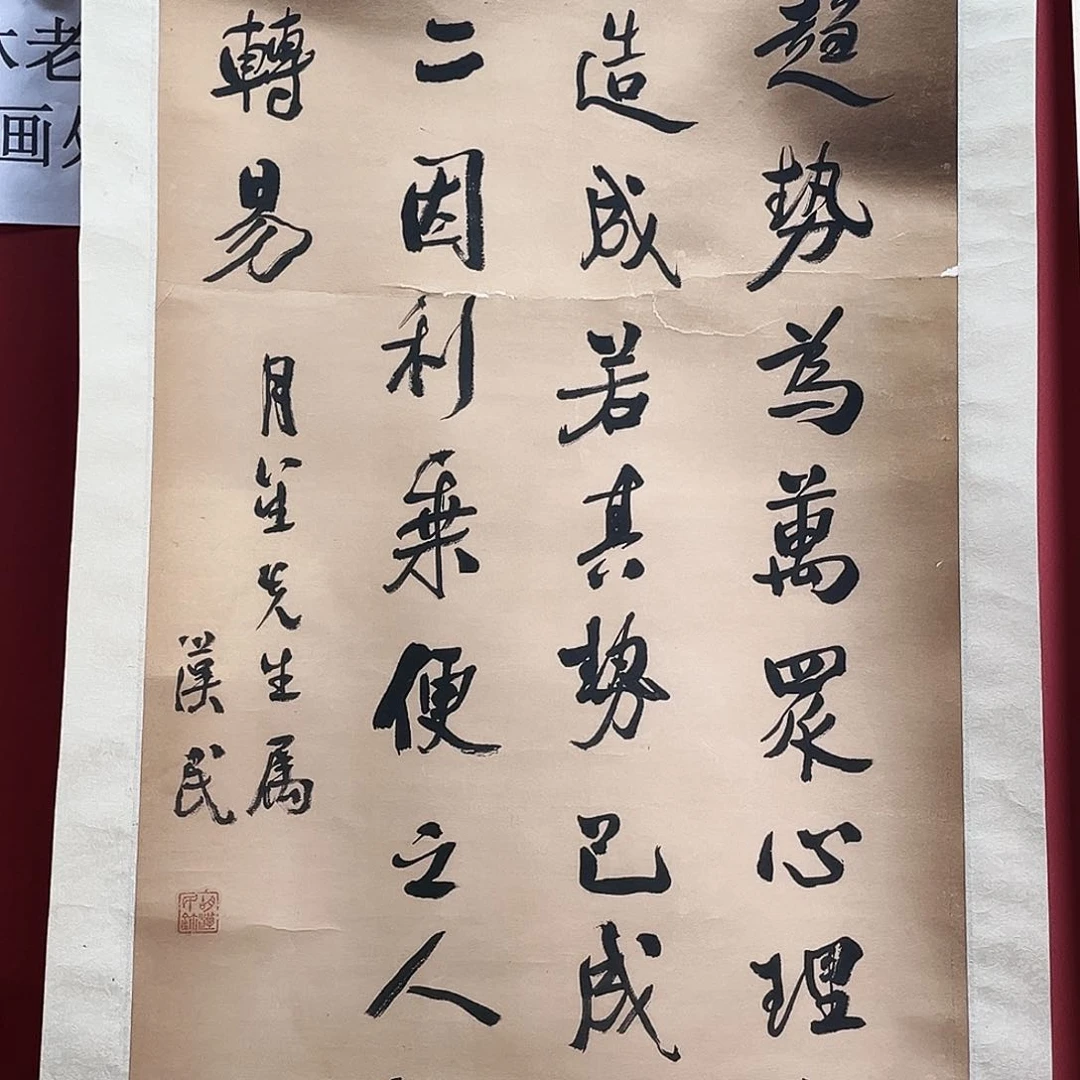 趋勢為萬眾心理
造成若其勢已成
二因利乘便之人
轉易
月笙先生属
漢民
老
画